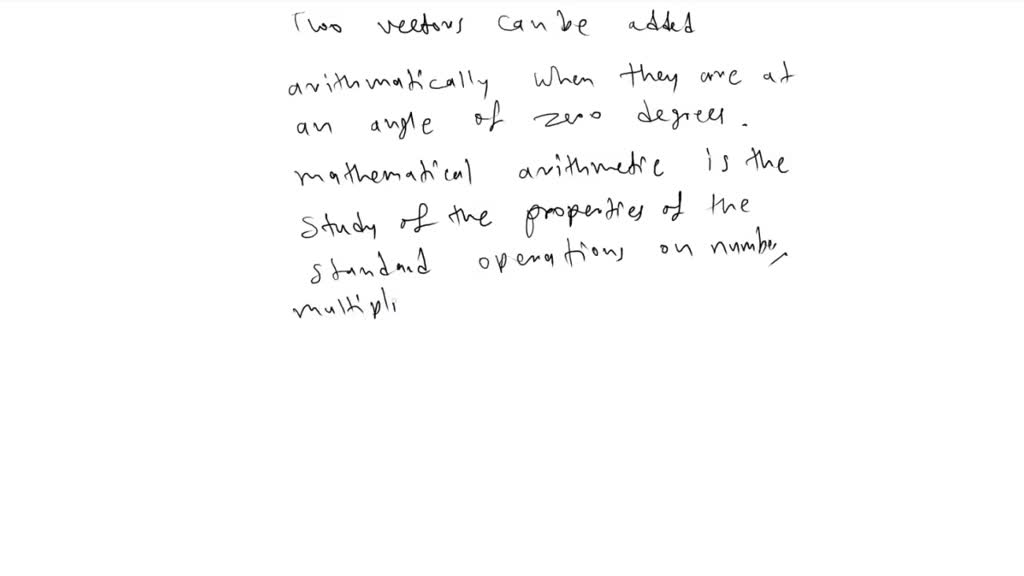 Two vectors can be added
arithmatically when they are at
an angle of zero degrees.
mathematical arithmetic is the
study of the properties of the
standard operations on number,
multipli